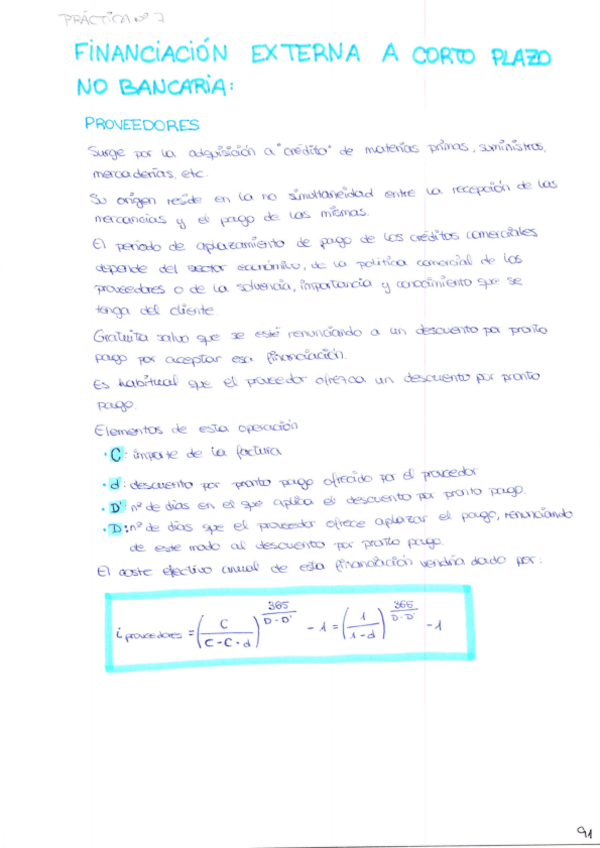 PRÁCTICA Nº 7
FINANCIACIÓN EXTERNA A CORTO PLAZO
NO BANCARIA:
PROVEEDORES
Surge por la adquisición a "crédito" de materias primas, suministros,
mercaderías, etc.
Su origen reside en la no simultaneidad entre la recepción de las
mercancías y el pago de las mismas.
El período de aplazamiento de pago de los créditos comerciales
depende del sector económico, de la política comercial de los
proveedores o de la solvencia, importancia y conocimiento que se
tenga del cliente.
Gratuita salvo que se esté renunciando a un descuento por pronto
pago por aceptar esa financiación.
Es habitual que el proveedor ofrezca un descuento por pronto
pago.
Elementos de esta operación
· C: importe de la factura
· d: descuento por pronto pago ofrecido por el proveedor
· D': nº de días en el que aplica el descuento por pronto pago.
· D: nº de días que el proveedor ofrece aplazar el pago, renunciando
de este modo al descuento por pronto pago.
El coste efectivo anual de esta financiación vendría dado por:
i proveedores = (C / (C - C · d))^(365 / (D - D')) - 1 = (1 / (1 - d))^(365 / (D - D')) - 1
91